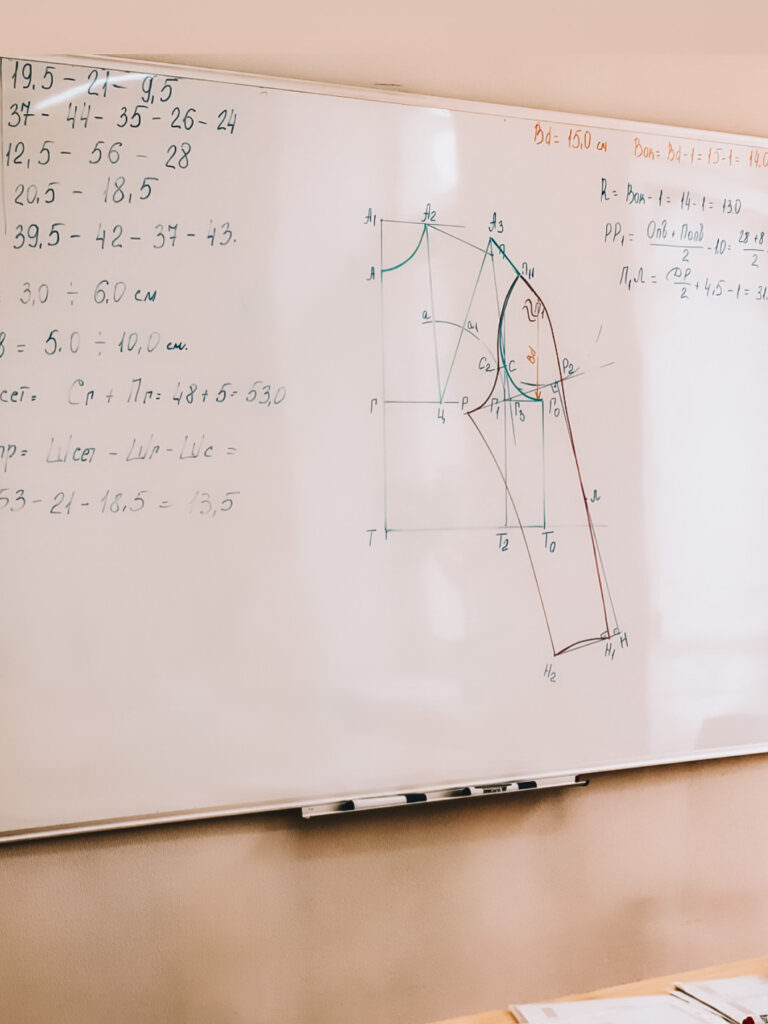 19,5 – 21 – 9,5
37 – 44 – 35 – 26 – 24
12,5 – 56 – 28
20,5 – 18,5
39,5 – 42 – 37 – 43.
= 3,0 ÷ 6,0 см
= 5.0 ÷ 10,0 см.
сет= Сг + Пг= 48 + 5 = 53,0
пр= Шсет – Шг – Шс =
53 – 21 – 18,5 = 13,5
Вд = 15,0 см
Вок= Вд-1 = 15-1 = 14.0
R = Вок - 1 = 14 - 1 = 130
РР₁ = (Опв + Попв)/2 - 1.0 = (28+8)/2
П₁Л = ОР/2 + 4,5 - 1 = 31
А₁ А₂ А₃
А
П₁₁
П₁
а а₁
Вд
С₂ С Р₂
Г Ц Р Г₁ Г₃ Г₀
Л
Т Т₂ Т₀
Н₂ Н₁ Н